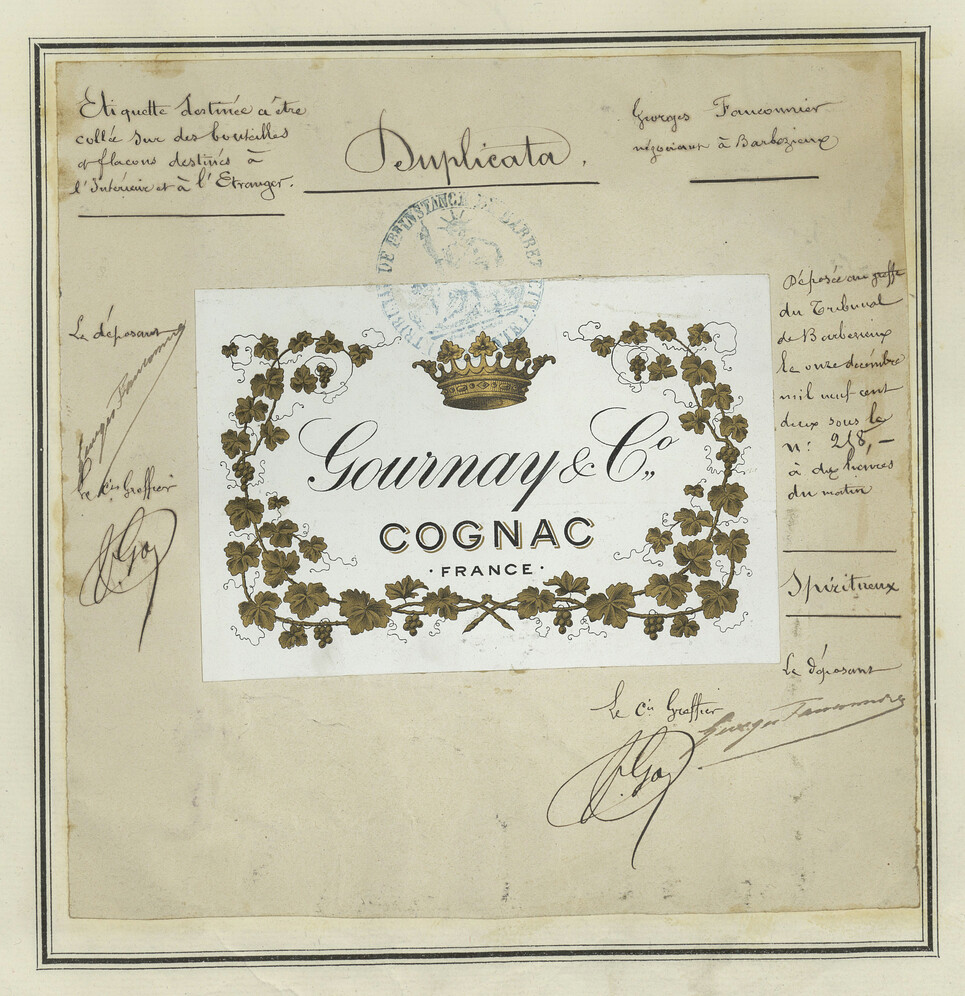 Etiquette destinée à être
collée sur des bouteilles
et flacons destinés à
l'Intérieur et à l'Etranger.
Duplicata.
Georges Fauconnier
négociant à Barbezieux
TRIBUNAL DE 1RE INSTANCE DE BARBEZIEUX
Gournay & Co
COGNAC
· FRANCE ·
Déposée au greffe
du Tribunal
de Barbezieux
le onze décembre
mil neuf cent
deux sous le
n: 218, –
à dix heures
du matin
Spiritueux
Le déposant
Georges Fauconnier
Le cis Greffier
Le déposant
Georges Fauconnier
Le cis Greffier